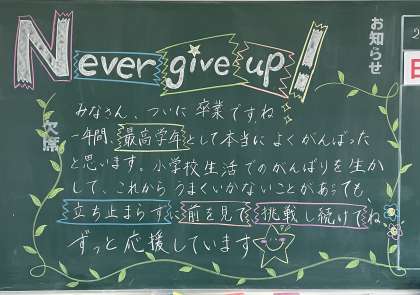 Never give up!
お知らせ
欠席
みなさん、ついに卒業ですね
一年間、最高学年として本当によくがんばった
と思います。小学校生活でのがんばりを生か
して、これからうまくいかないことがあっても、
立ち止まらずに前を見て挑戦し続けてね
ずっと応援しています